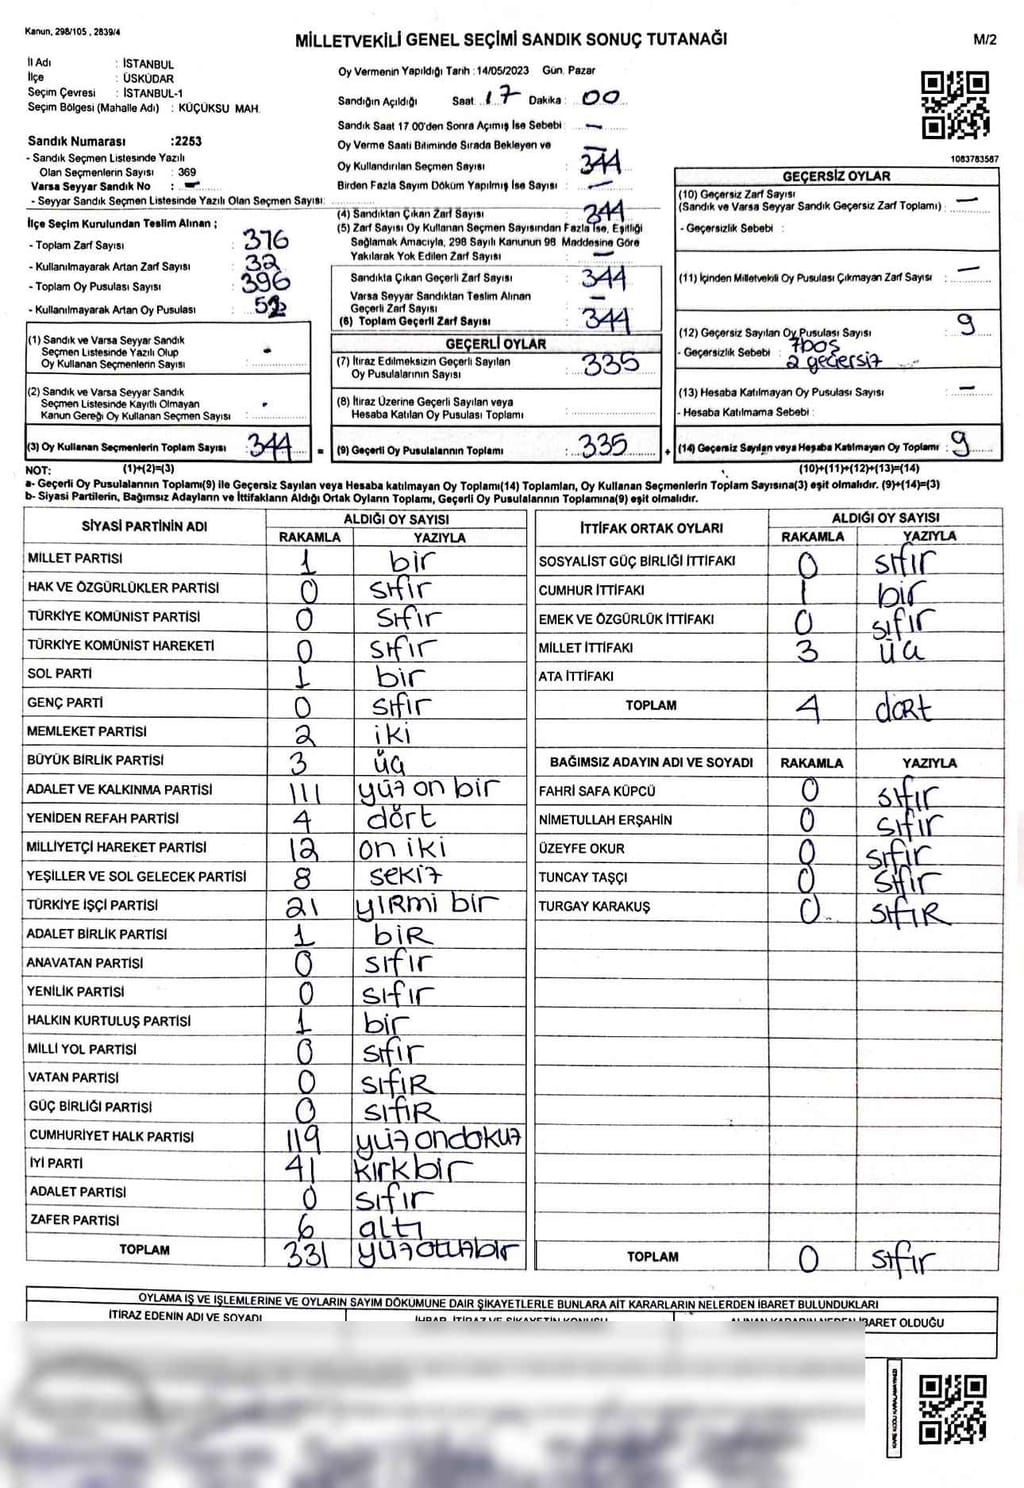 Kanun, 298/105 , 2839/4
MİLLETVEKİLİ GENEL SEÇİMİ SANDIK SONUÇ TUTANAĞI
M/2
İl Adı : İSTANBUL
İlçe : ÜSKÜDAR
Seçim Çevresi : İSTANBUL-1
Seçim Bölgesi (Mahalle Adı) : KÜÇÜKSU MAH.
Sandık Numarası :2253
- Sandık Seçmen Listesinde Yazılı
Olan Seçmenlerin Sayısı : 369
Varsa Seyyar Sandık No : -
- Seyyar Sandık Seçmen Listesinde Yazılı Olan Seçmen Sayısı:
İlçe Seçim Kurulundan Teslim Alınan ;
- Toplam Zarf Sayısı : 376
- Kullanılmayarak Artan Zarf Sayısı : 32
- Toplam Oy Pusulası Sayısı : 396
- Kullanılmayarak Artan Oy Pusulası : 52
(1) Sandık ve Varsa Seyyar Sandık
Seçmen Listesinde Yazılı Olup
Oy Kullanan Seçmenlerin Sayısı : -
(2) Sandık ve Varsa Seyyar Sandık
Seçmen Listesinde Kayıtlı Olmayan
Kanun Gereği Oy Kullanan Seçmen Sayısı :
(3) Oy Kullanan Seçmenlerin Toplam Sayısı : 344 =
Oy Vermenin Yapıldığı Tarih : 14/05/2023 Gün: Pazar
Sandığın Açıldığı Saat : 17 Dakika : 00
Sandık Saat 17 00'den Sonra Açımış İse Sebebi : -
Oy Verme Saati Bitiminde Sırada Bekleyen ve : -
Oy Kullandırılan Seçmen Sayısı : 344
Birden Fazla Sayım Döküm Yapılmış İse Sayısı : -
(4) Sandıktan Çıkan Zarf Sayısı : 344
(5) Zarf Sayısı Oy Kullanan Seçmen Sayısından Fazla İse, Eşitliği
Sağlamak Amacıyla, 298 Sayılı Kanunun 98 Maddesine Göre
Yakılarak Yok Edilen Zarf Sayısı : -
Sandıkta Çıkan Geçerli Zarf Sayısı : 344
Varsa Seyyar Sandıktan Teslim Alınan
Geçerli Zarf Sayısı : -
(6) Toplam Geçerli Zarf Sayısı : 344
GEÇERLİ OYLAR
(7) İtiraz Edilmeksizin Geçerli Sayılan
Oy Pusulalarının Sayısı : 335
(8) İtiraz Üzerine Geçerli Sayılan veya
Hesaba Katılan Oy Pusulası Toplamı :
(9) Geçerli Oy Pusulalarının Toplamı : 335 +
1083783587
GEÇERSİZ OYLAR
(10) Geçersiz Zarf Sayısı
(Sandık ve Varsa Seyyar Sandık Geçersiz Zarf Toplamı) : -
- Geçersizlik Sebebi :
(11) İçinden Milletvekili Oy Pusulası Çıkmayan Zarf Sayısı : -
(12) Geçersiz Sayılan Oy Pusulası Sayısı : 9
- Geçersizlik Sebebi : 7boş
2 geçersiz
(13) Hesaba Katılmayan Oy Pusulası Sayısı : -
- Hesaba Katılmama Sebebi :
(14) Geçersiz Sayılan veya Hesaba Katılmayan Oy Toplamı : 9
NOT: (1)+(2)=(3) (10)+(11)+(12)+(13)=(14)
a- Geçerli Oy Pusulalarının Toplamı(9) ile Geçersiz Sayılan veya Hesaba katılmayan Oy Toplamı(14) Toplamları, Oy Kullanan Seçmenlerin Toplam Sayısına(3) eşit olmalıdır. (9)+(14)=(3)
b- Siyasi Partilerin, Bağımsız Adayların ve İttifakların Aldığı Ortak Oyların Toplamı, Geçerli Oy Pusulalarının Toplamına(9) eşit olmalıdır.
SİYASİ PARTİNİN ADI ALDIĞI OY SAYISI
RAKAMLA YAZIYLA
MİLLET PARTİSİ 1 bir
HAK VE ÖZGÜRLÜKLER PARTİSİ 0 sıfır
TÜRKİYE KOMÜNİST PARTİSİ 0 sıfır
TÜRKİYE KOMÜNİST HAREKETİ 0 sıfır
SOL PARTİ 1 bir
GENÇ PARTİ 0 sıfır
MEMLEKET PARTİSİ 2 iki
BÜYÜK BİRLİK PARTİSİ 3 üç
ADALET VE KALKINMA PARTİSİ 111 yüz on bir
YENİDEN REFAH PARTİSİ 4 dört
MİLLİYETÇİ HAREKET PARTİSİ 12 on iki
YEŞİLLER VE SOL GELECEK PARTİSİ 8 sekiz
TÜRKİYE İŞÇİ PARTİSİ 21 yiRmi bir
ADALET BİRLİK PARTİSİ 1 biR
ANAVATAN PARTİSİ 0 sıfır
YENİLİK PARTİSİ 0 sıfır
HALKIN KURTULUŞ PARTİSİ 1 bir
MİLLİ YOL PARTİSİ 0 sıfır
VATAN PARTİSİ 0 sıfıR
GÜÇ BİRLİĞİ PARTİSİ 0 sıfıR
CUMHURİYET HALK PARTİSİ 119 yüz ondokuz
İYİ PARTİ 41 kırkbir
ADALET PARTİSİ 0 sıfır
ZAFER PARTİSİ 6 altı
TOPLAM 331 yüzotuzbir
İTTİFAK ORTAK OYLARI ALDIĞI OY SAYISI
RAKAMLA YAZIYLA
SOSYALİST GÜÇ BİRLİĞİ İTTİFAKI 0 sıfır
CUMHUR İTTİFAKI 1 bir
EMEK VE ÖZGÜRLÜK İTTİFAKI 0 sıfır
MİLLET İTTİFAKI 3 üç
ATA İTTİFAKI
TOPLAM 4 döRt
BAĞIMSIZ ADAYIN ADI VE SOYADI RAKAMLA YAZIYLA
FAHRİ SAFA KÜPCÜ 0 sıfır
NİMETULLAH ERŞAHİN 0 sıfır
ÜZEYFE OKUR 0 sıfır
TUNCAY TAŞÇI 0 sıfır
TURGAY KARAKUŞ 0 sıfıR
TOPLAM 0 sıfır
OYLAMA İŞ VE İŞLEMLERİNE VE OYLARIN SAYIM DÖKÜMÜNE DAİR ŞİKAYETLERLE BUNLARA AİT KARARLARIN NELERDEN İBARET BULUNDUKLARI
İTİRAZ EDENİN ADI VE SOYADI
İBARET OLDUĞU